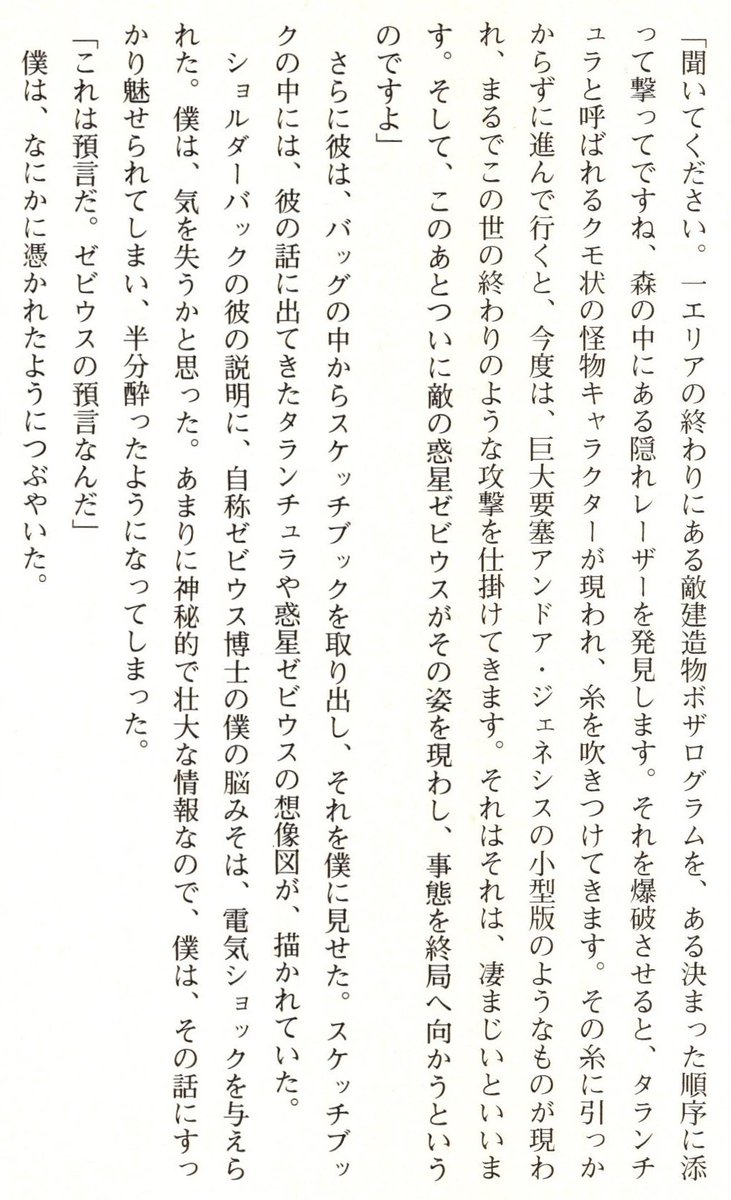 「聞いてください。一エリアの終わりにある敵建造物ボザログラムを、ある決まった順序に添
って撃ってですね、森の中にある隠れレーザーを発見します。それを爆破させると、タランチ
ュラと呼ばれるクモ状の怪物キャラクターが現われ、糸を吹きつけてきます。その糸に引っか
からずに進んで行くと、今度は、巨大要塞アンドア・ジェネシスの小型版のようなものが現わ
れ、まるでこの世の終わりのような攻撃を仕掛けてきます。それはそれは、凄まじいといいま
す。そして、このあとついに敵の惑星ゼビウスがその姿を現わし、事態を終局へ向かうという
のですよ」
さらに彼は、バッグの中からスケッチブックを取り出し、それを僕に見せた。スケッチブッ
クの中には、彼の話に出てきたタランチュラや惑星ゼビウスの想像図が、描かれていた。
ショルダーバックの彼の説明に、自称ゼビウス博士の僕の脳みそは、電気ショックを与えら
れた。僕は、気を失うかと思った。あまりに神秘的で壮大な情報なので、僕は、その話にすっ
かり魅せられてしまい、半分酔ったようになってしまった。
「これは預言だ。ゼビウスの預言なんだ」
僕は、なにかに憑かれたようにつぶやいた。